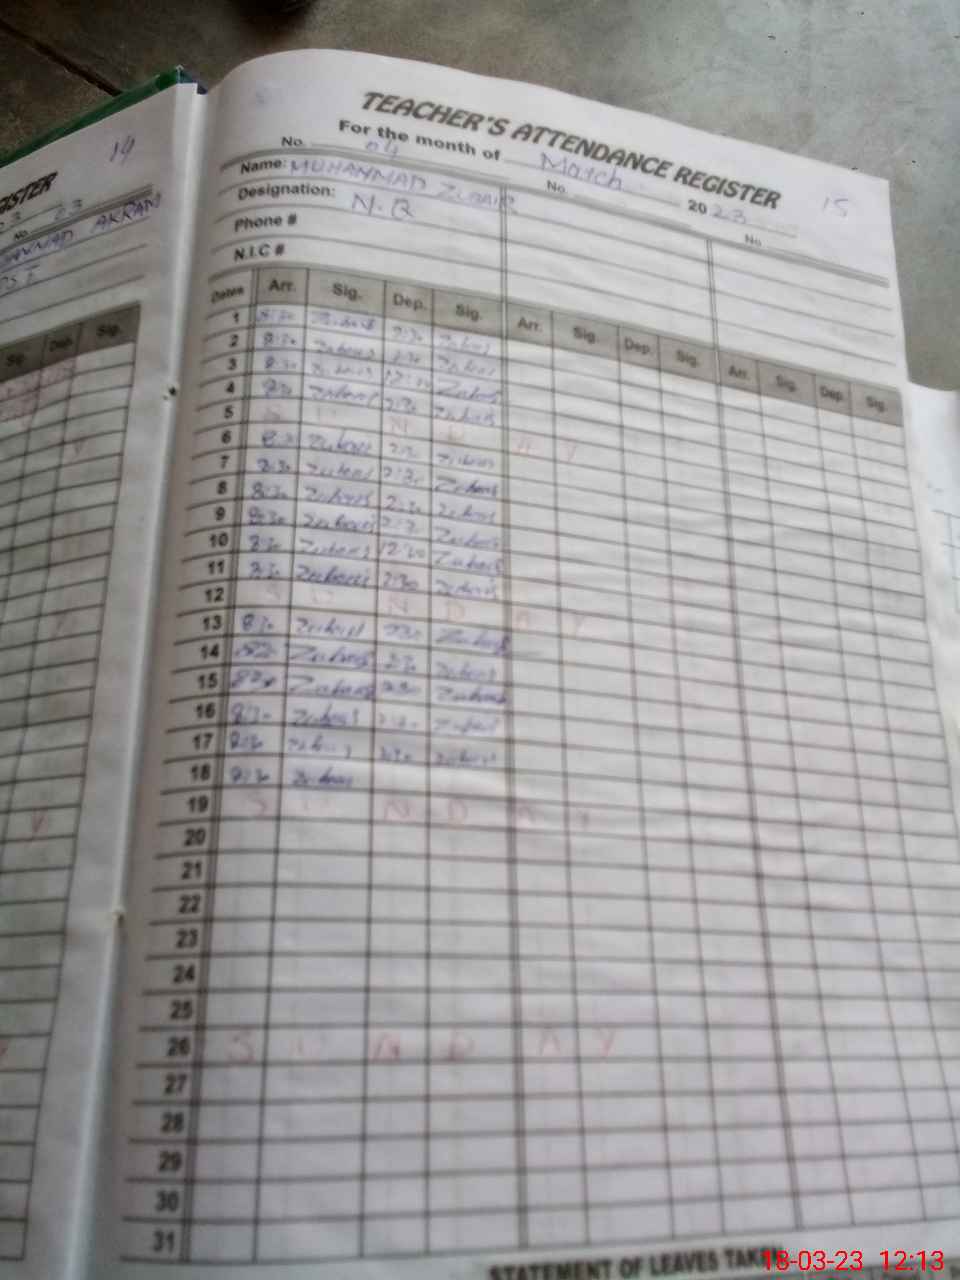 14
GISTER
23 23
No.
HAMMAD AKRAM
PST
Sig. Dep. Sig.
15
TEACHER'S ATTENDANCE REGISTER
For the month of March 2023
No. 04 No. No.
Name: MUHAMMAD ZUBAIR
Designation: N.Q
Phone #
N.I.C #
Dates Arr. Sig. Dep. Sig. Arr. Sig. Dep. Sig. Arr. Sig. Dep. Sig.
1 8:30 Zubair 2:30 Zubair
2 8:30 Zubair 2:30 Zubair
3 8:30 Zubair 12:30 Zubair
4 8:30 Zubair 2:30 Zubair
5 S U N D A Y
6 8:30 Zubair 2:30 Zubair
7 8:30 Zubair 2:30 Zubair
8 8:30 Zubair 2:30 Zubair
9 8:30 Zubair 2:30 Zubair
10 8:30 Zubair 12:30 Zubair
11 8:30 Zubair 2:30 Zubair
12 S U N D A Y
13 8:30 Zubair 2:30 Zubair
14 8:30 Zubair 2:30 Zubair
15 8:30 Zubair 2:30 Zubair
16 8:30 Zubair 2:30 Zubair
17 8:30 Zubair 2:30 Zubair
18 8:30 Zubair
19 S U N D A Y
20
21
22
23
24
25
26 S U N D A Y
27
28
29
30
31
STATEMENT OF LEAVES TAKEN
18-03-23 12:13